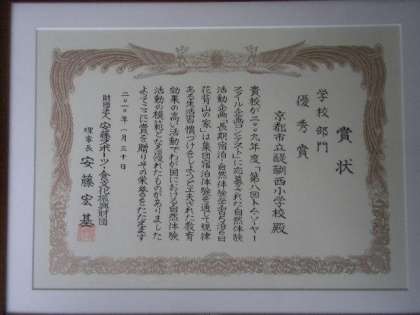 賞状
学校部門
優秀賞
京都市立醍醐西小学校殿
貴校が二〇〇九年度「第八回トム・ソーヤー
スクール企画コンテスト」に応募された自然体験
活動企画「長期宿泊・自然体験学習 五泊六日
花背山の家」は集団宿泊体験を通して規律
ある生活習慣づけをしようと工夫された教育
効果の高い活動でわが国における自然体験
活動の模範となる優れたものがありました
よってここに賞を贈りその栄誉をたたえます
二〇一〇年一月三十日
財団法人 安藤スポーツ・食文化振興財団
理事長 安藤宏基